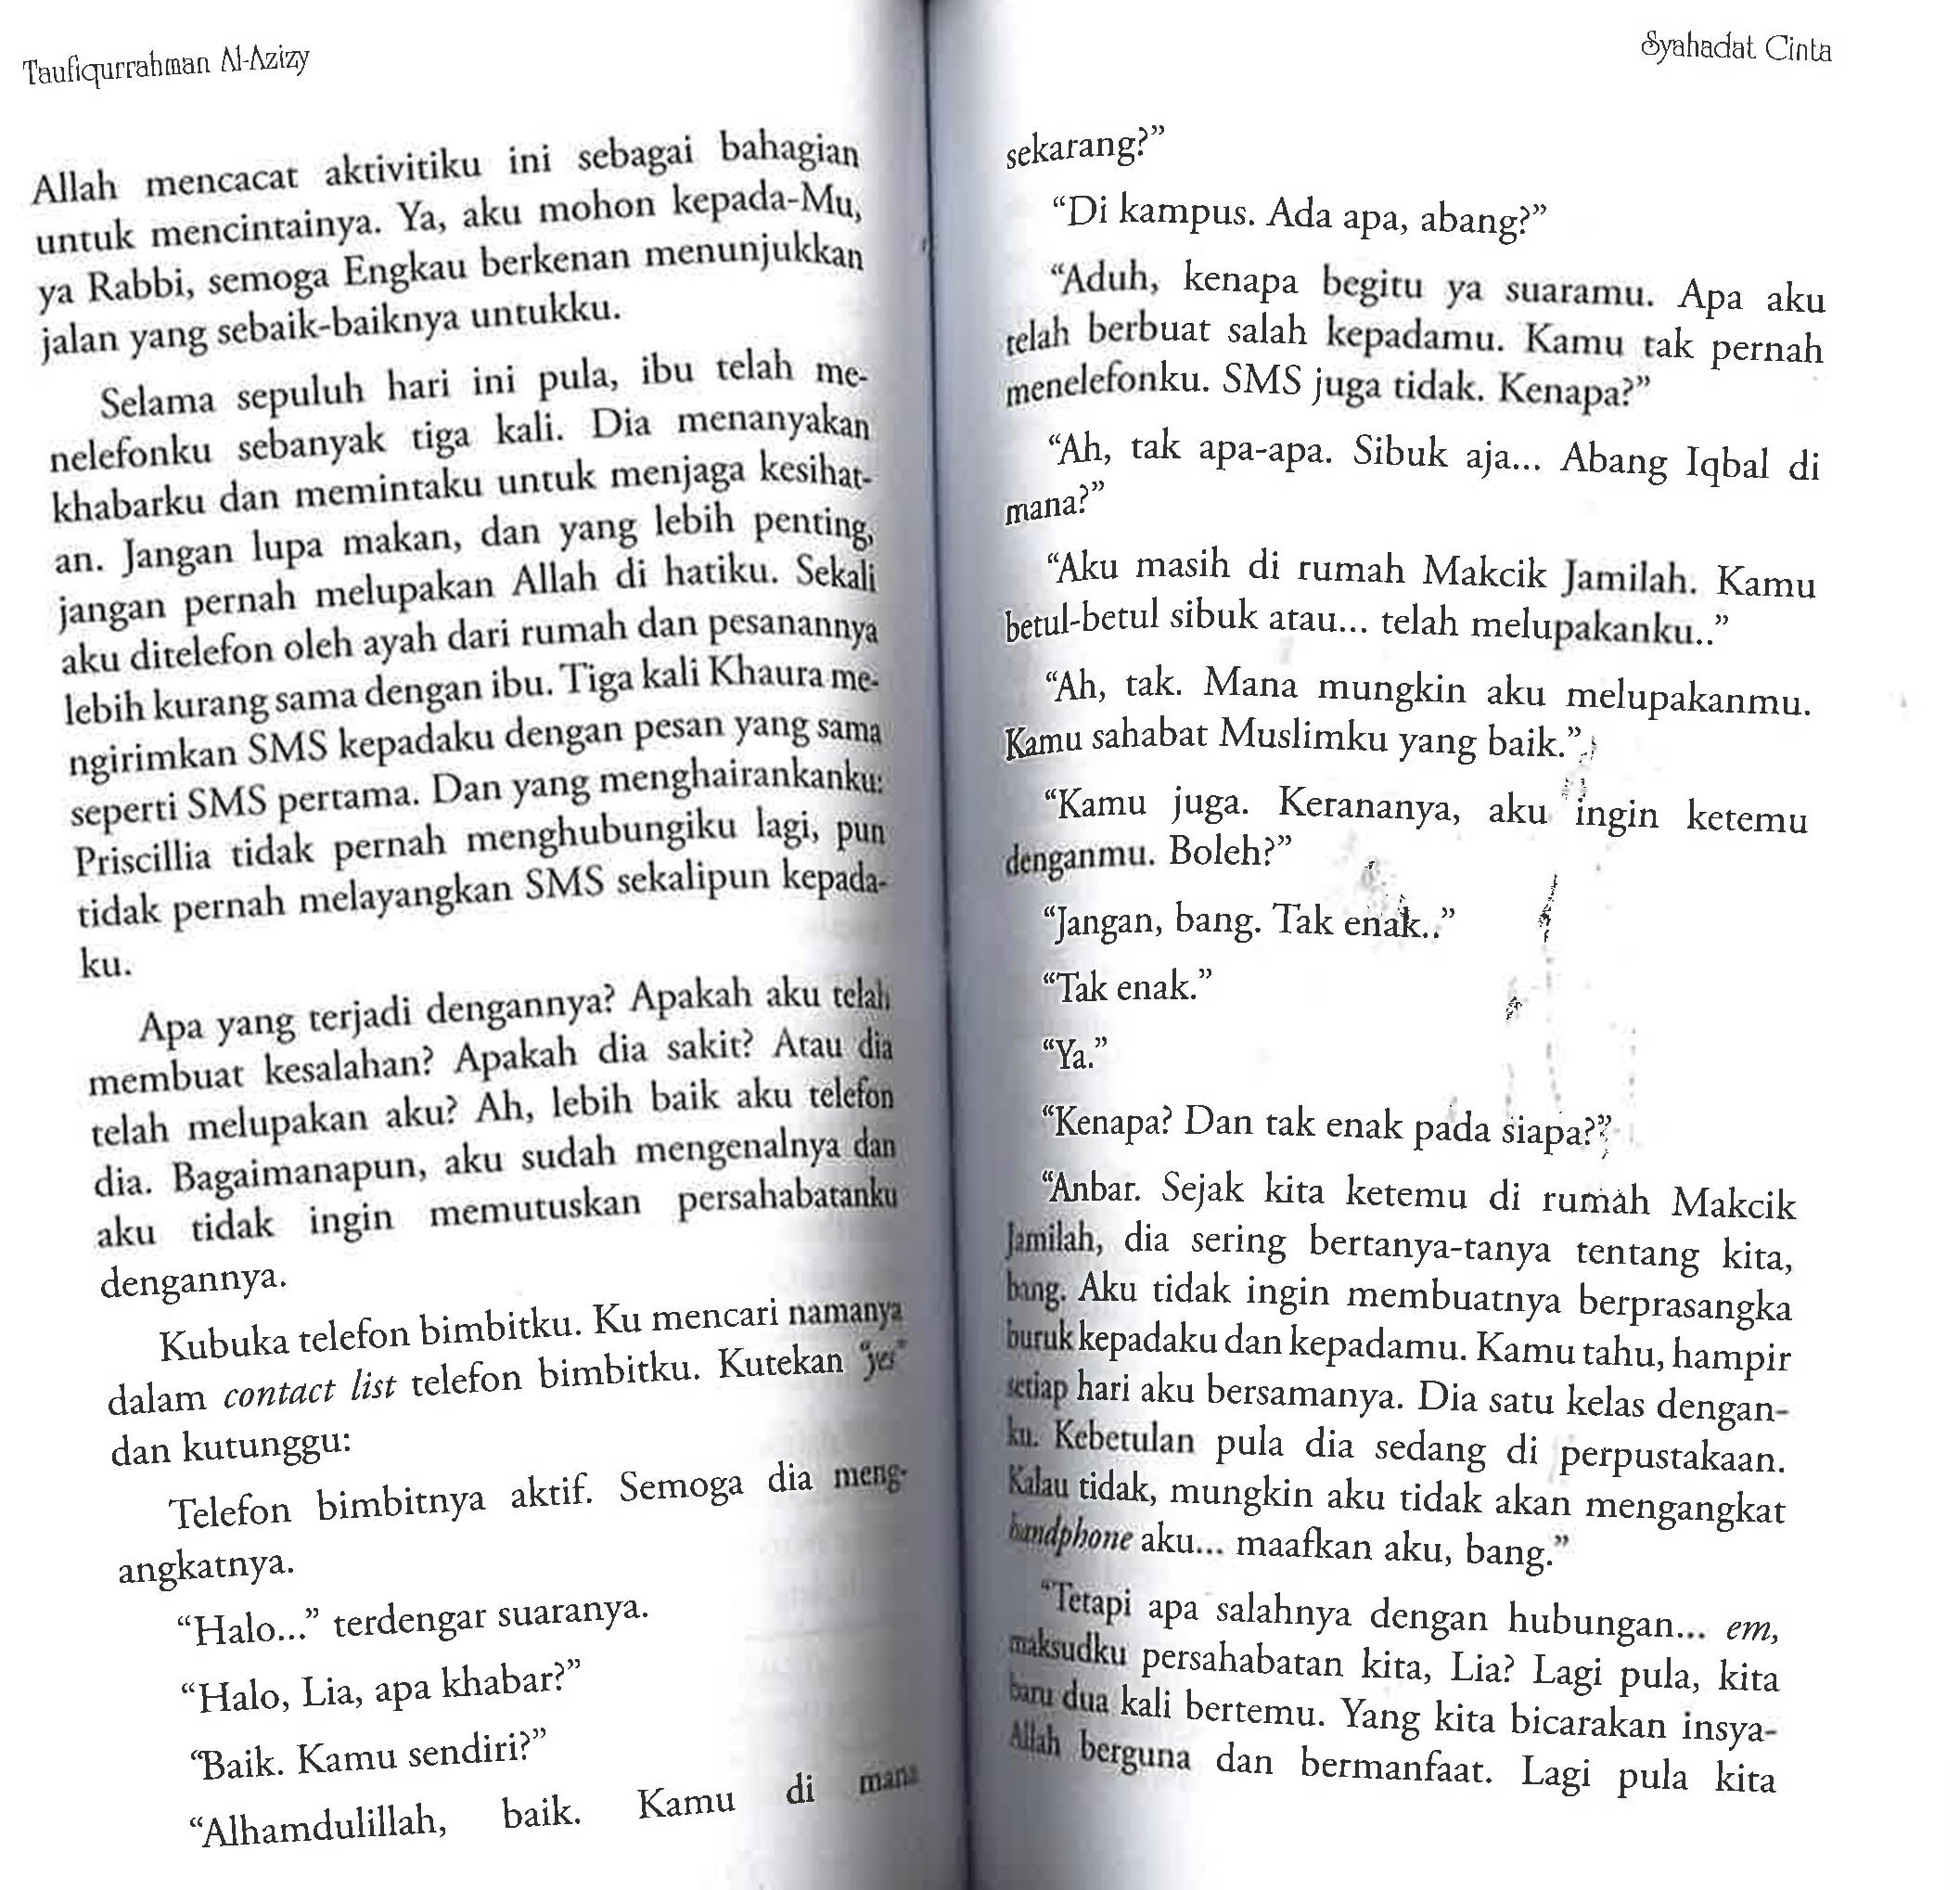 Taufiqurrahman Al-Azizy
Allah mencacat aktivitiku ini sebagai bahagian
untuk mencintainya. Ya, aku mohon kepada-Mu,
ya Rabbi, semoga Engkau berkenan menunjukkan
jalan yang sebaik-baiknya untukku.
Selama sepuluh hari ini pula, ibu telah me-
nelefonku sebanyak tiga kali. Dia menanyakan
khabarku dan memintaku untuk menjaga kesihat-
an. Jangan lupa makan, dan yang lebih penting,
jangan pernah melupakan Allah di hatiku. Sekali
aku ditelefon oleh ayah dari rumah dan pesanannya
lebih kurang sama dengan ibu. Tiga kali Khaura me-
ngirimkan SMS kepadaku dengan pesan yang sama
seperti SMS pertama. Dan yang menghairankanku:
Priscillia tidak pernah menghubungiku lagi, pun
tidak pernah melayangkan SMS sekalipun kepada-
ku.
Apa yang terjadi dengannya? Apakah aku telah
membuat kesalahan? Apakah dia sakit? Atau dia
telah melupakan aku? Ah, lebih baik aku telefon
dia. Bagaimanapun, aku sudah mengenalnya dan
aku tidak ingin memutuskan persahabatanku
dengannya.
Kubuka telefon bimbitku. Ku mencari namanya
dalam contact list telefon bimbitku. Kutekan “yes”
dan kutunggu:
Telefon bimbitnya aktif. Semoga dia meng-
angkatnya.
“Halo...” terdengar suaranya.
“Halo, Lia, apa khabar?”
“Baik. Kamu sendiri?”
“Alhamdulillah, baik. Kamu di mana
Syahadat Cinta
sekarang?”
“Di kampus. Ada apa, abang?”
“Aduh, kenapa begitu ya suaramu. Apa aku
telah berbuat salah kepadamu. Kamu tak pernah
menelefonku. SMS juga tidak. Kenapa?”
“Ah, tak apa-apa. Sibuk aja... Abang Iqbal di
mana?”
“Aku masih di rumah Makcik Jamilah. Kamu
betul-betul sibuk atau... telah melupakanku..”
“Ah, tak. Mana mungkin aku melupakanmu.
Kamu sahabat Muslimku yang baik.”
“Kamu juga. Kerananya, aku ingin ketemu
denganmu. Boleh?”
“Jangan, bang. Tak enak..”
“Tak enak.”
“Ya.”
“Kenapa? Dan tak enak pada siapa?”
“Anbar. Sejak kita ketemu di rumah Makcik
Jamilah, dia sering bertanya-tanya tentang kita,
bang. Aku tidak ingin membuatnya berprasangka
buruk kepadaku dan kepadamu. Kamu tahu, hampir
setiap hari aku bersamanya. Dia satu kelas dengan-
ku. Kebetulan pula dia sedang di perpustakaan.
Kalau tidak, mungkin aku tidak akan mengangkat
handphone aku... maafkan aku, bang.”
“Tetapi apa salahnya dengan hubungan... em,
maksudku persahabatan kita, Lia? Lagi pula, kita
baru dua kali bertemu. Yang kita bicarakan insya-
Allah berguna dan bermanfaat. Lagi pula kita